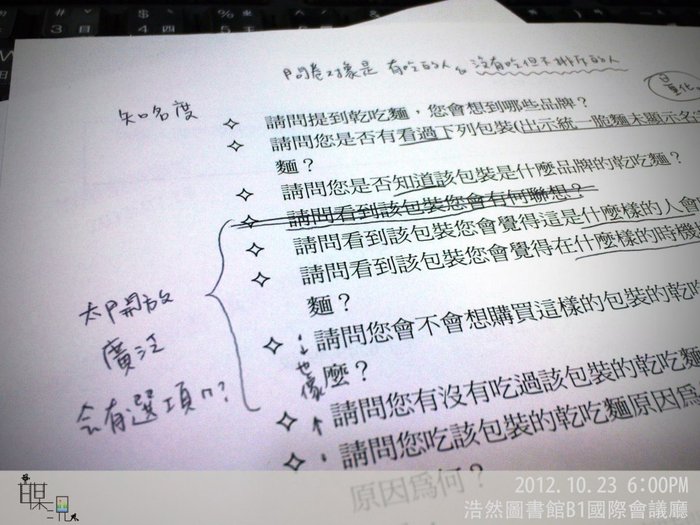 問卷對象是 有吃的人& 沒有吃但不排斥的人
量化
知名度
請問提到乾吃麵，您會想到哪些品牌？
請問您是否有看過下列包裝(出示統一脆麵未顯示名
麵？
請問您是否知道該包裝是什麼品牌的乾吃麵？
請問看到該包裝您會有何聯想？
請問看到該包裝您會覺得這是什麼樣的人會
請問看到該包裝您會覺得在什麼樣的時機
麵？
太開放
廣泛
會有選項嗎?
請問您會不會想購買這樣的包裝的乾吃
也像
麼？
請問您有沒有吃過該包裝的乾吃麵
請問您吃該包裝的乾吃麵原因為
原因為何？
2012.10.23 6:00PM
浩然圖書館B1國際會議廳